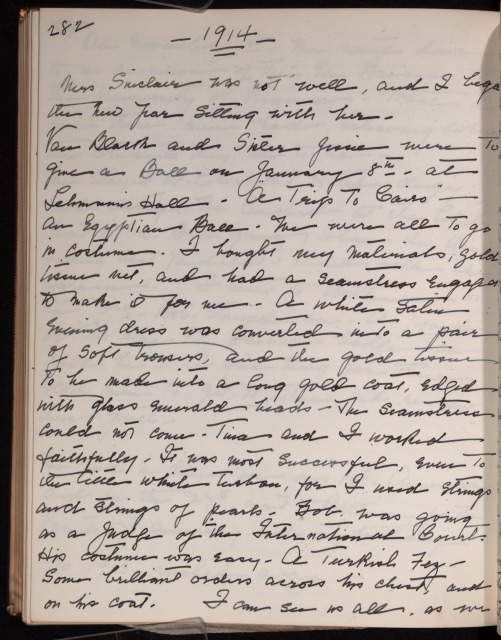 282
- 1914 -
Mrs Sinclair was not well, and I bega
the New Year sitting with her -
Van Black and Sister Jessie were to
give a Ball on January 8th - at
Lehmann's Hall - "A Trip To Cairo" -
an Egyptian Ball - We were all to go
in costume. I bought my materials, gold
tissue net, and had a seamstress engaged
to make it for me - A white Satin
Evening dress was converted into a pair
of soft trousers, and the gold tissue
to be made into a long gold coat, edged
with glass emerald beads - The seamstress
could not come - Tina and I worked
faithfully - It was most successful, even to
the little white turban, for I used strings
and strings of pearls - Bob was going
as a Judge of the International Court -
His costume was easy - A Turkish Fez -
Some brilliant orders across his chest, and
on his coat. I can see us all, as we